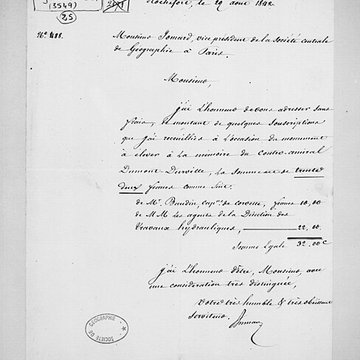 (3549)
Rochefort, le 29 aout 1842
Monsieur Jomard, vice président de la Société centrale
de Géographie à Paris.
Monsieur,
j'ai l'honneur de vous adresser sans
frais, le montant de quelques souscriptions
que j'ai recueillies à l'occasion du monument
à élever à la mémoire du contre-amiral
Dumont-Durville. La somme est de trente
deux francs comme suit.
de Mr. Baudin, capne. de corvette, francs 10,00
de MM les agents de la Direction des
travaux hydrauliques, 22,00
Somme égale 32,00 c
j'ai l'honneur d'être, Monsieur, avec
une considération très distinguée,
votre très humble & très obéissant
Serviteur.
SOCIÉTÉ DE GEOGRAPHIE